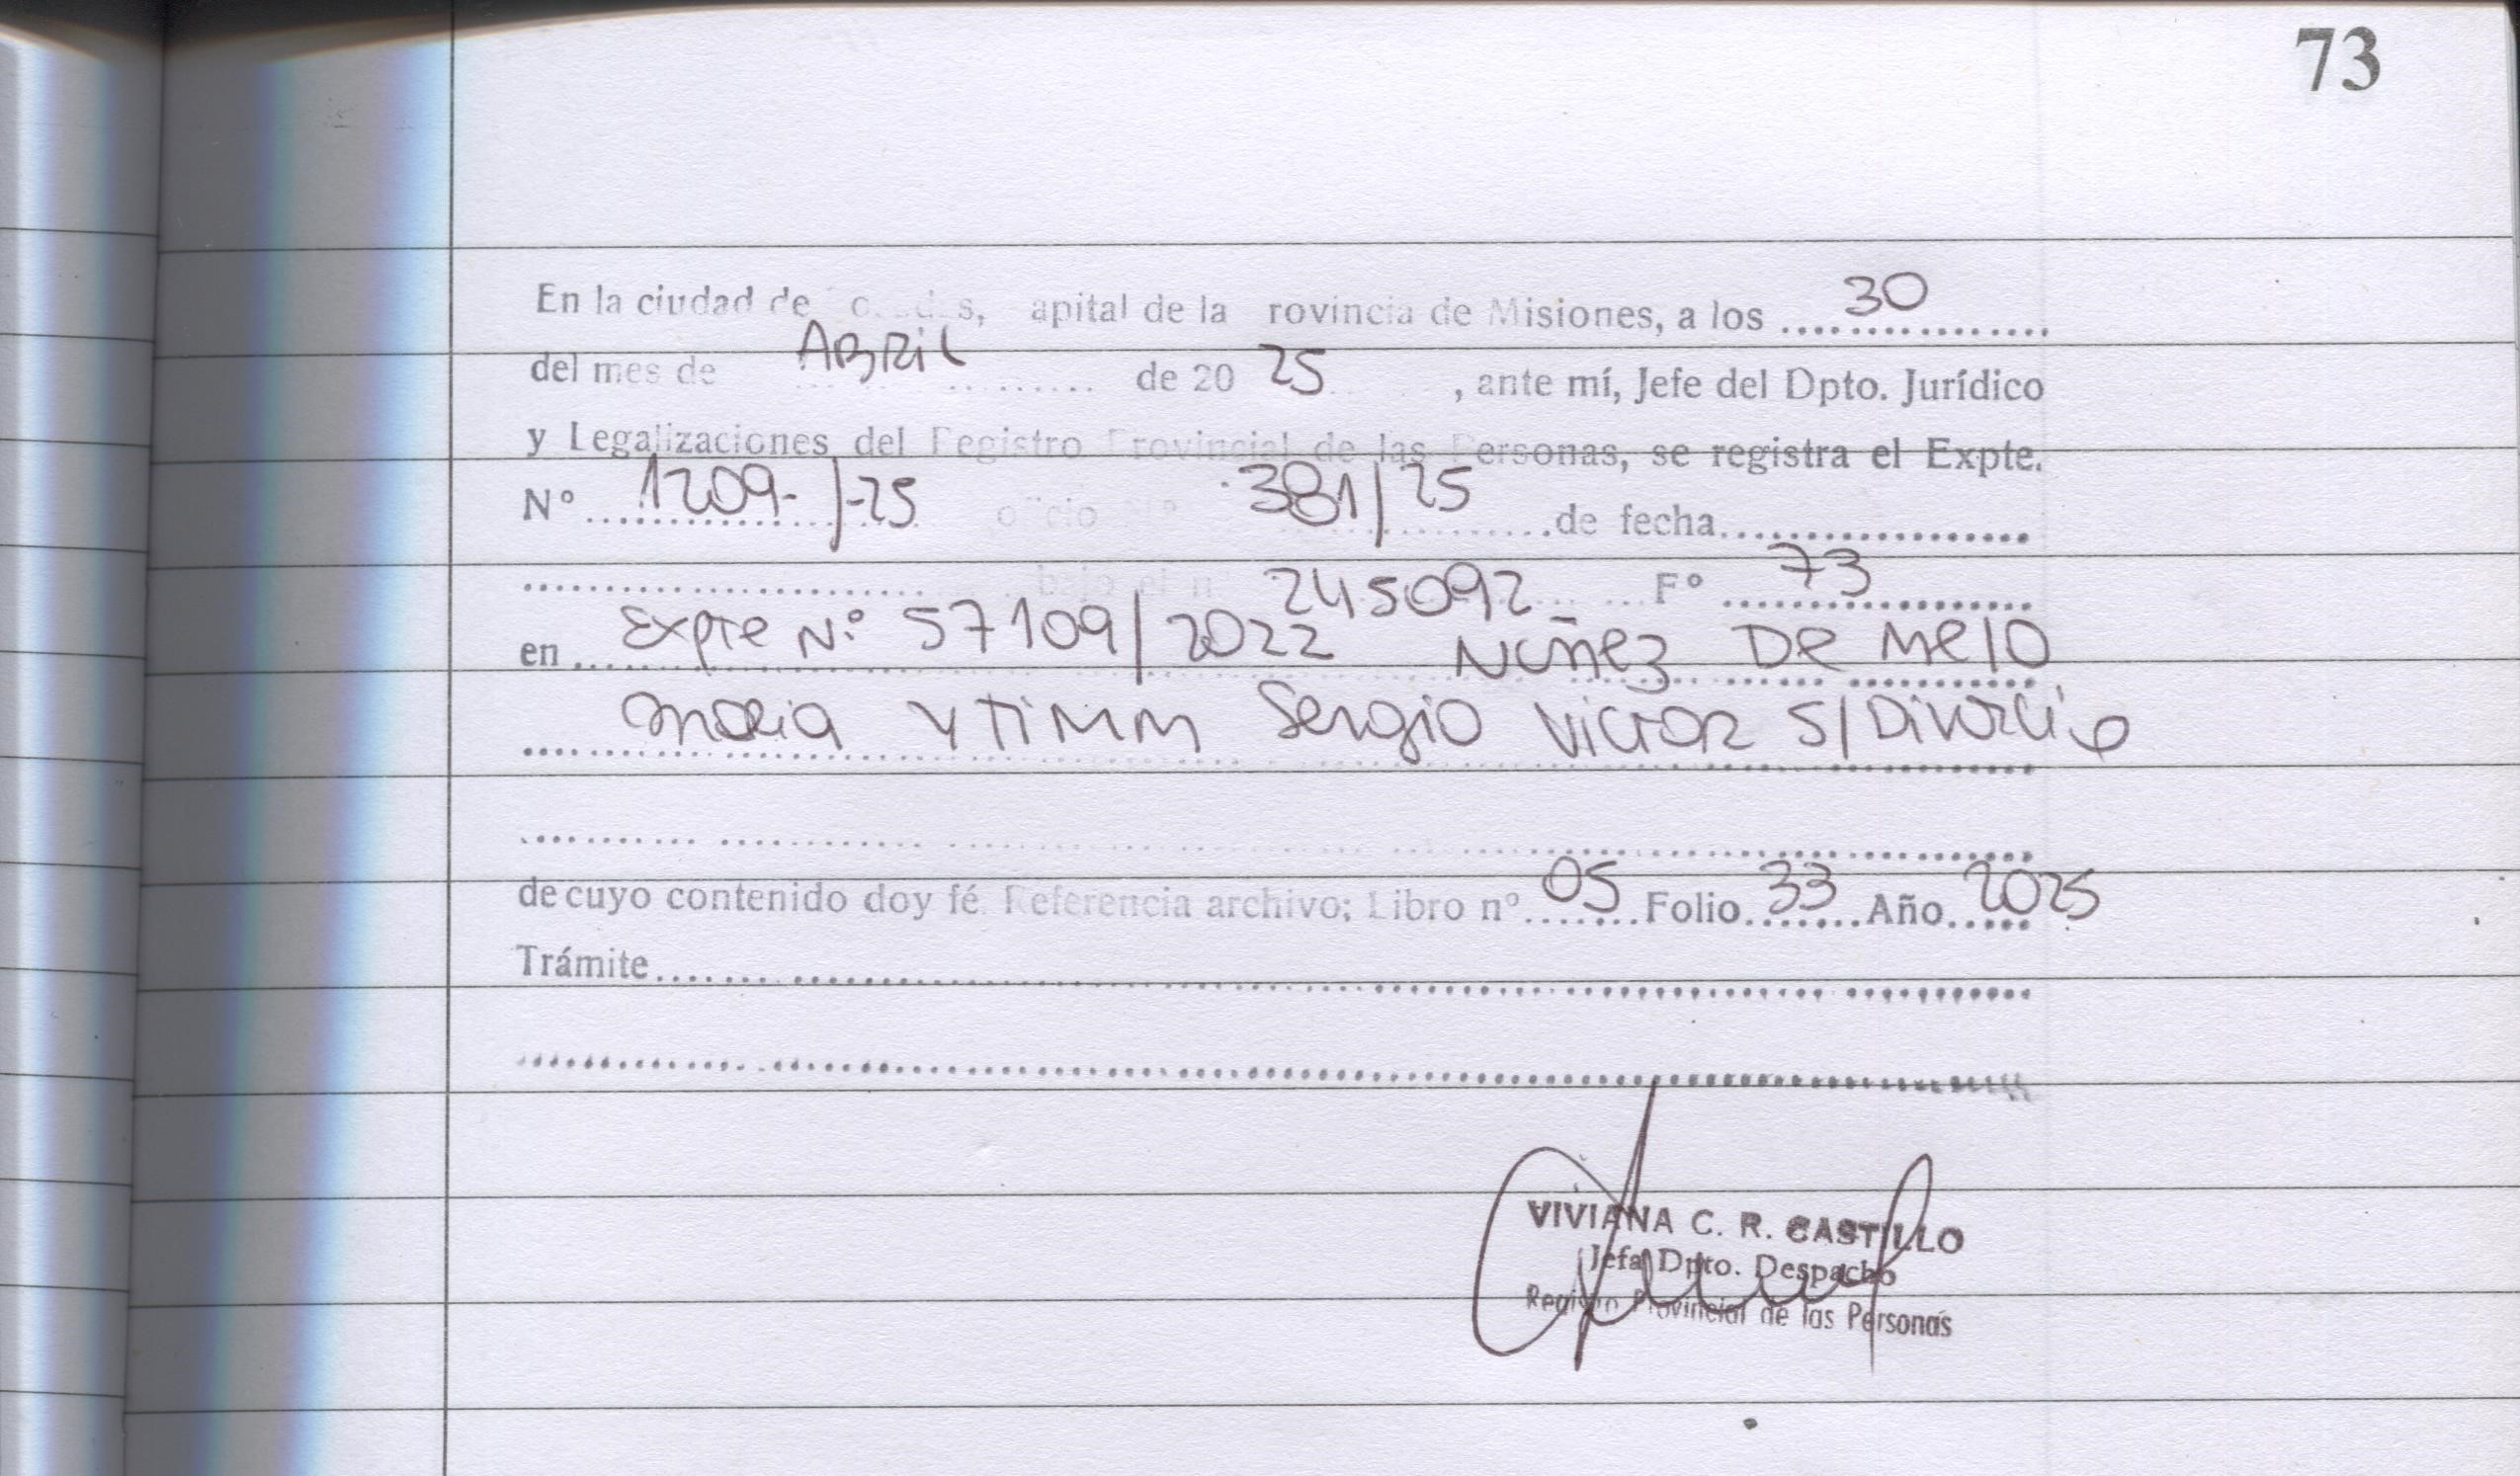 73
En la ciudad de Posadas, apital de la rovincia de Misiones, a los 30
del mes de ABRIL de 20 25, ante mí, Jefe del Dpto. Jurídico
y Legalizaciones del Registro Provincial de las Personas, se registra el Expte.
N° 1209-/-25 oficio N° 381/25 de fecha
bajo el n 245092 F° 73
en Expte N° 57109/2022 Nuñez De Melo
Maria y Timm Sergio Victor S/Divorcio
de cuyo contenido doy fé. Referencia archivo; Libro n° 05 Folio 33 Año 2025
Trámite
VIVIANA C. R. CASTILLO
Jefa Dpto. Despacho
Registro Provincial de las Personas